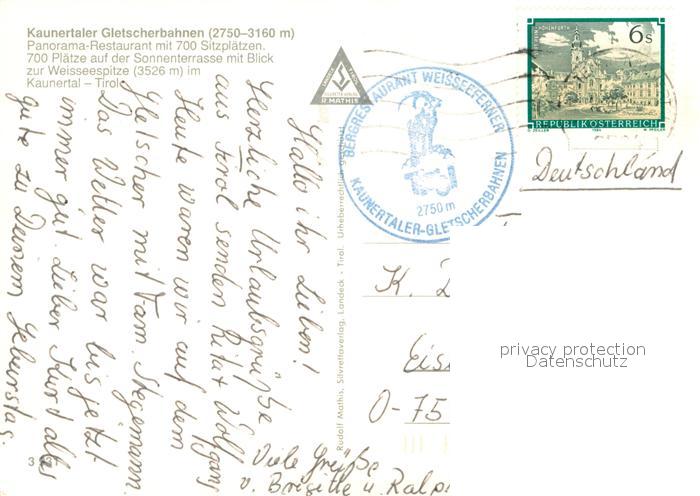 Kaunertaler Gletscherbahnen (2750–3160 m)
Panorama-Restaurant mit 700 Sitzplätzen.
700 Plätze auf der Sonnenterrasse mit Blick
zur Weisseespitze (3526 m) im
Kaunertal – Tirol
Hallo ihr Lieben!
Herzliche Urlaubsgrüße
aus Tirol senden Rita + Wolfgang
Heute waren wir auf dem
Gletscher mit Fam. Stegemann.
Das Wetter war bis jetzt
immer gut. Lieber Kurd alles
gute zu Deinem Geburtstag.
Viele Grüße
v. Brigitte u. Ralph
R. MATHIS
Rudolf Mathis, Silvrettaverlag, Landeck - Tirol. Urheberrechtlich geschützt
BERGRESTAURANT WEISSEEFERNER
2750 m
KAUNERTALER-GLETSCHERBAHNEN
6 S
REPUBLIK ÖSTERREICH
Deutschland
K.
Eis
O-75
privacy protection
Datenschutz